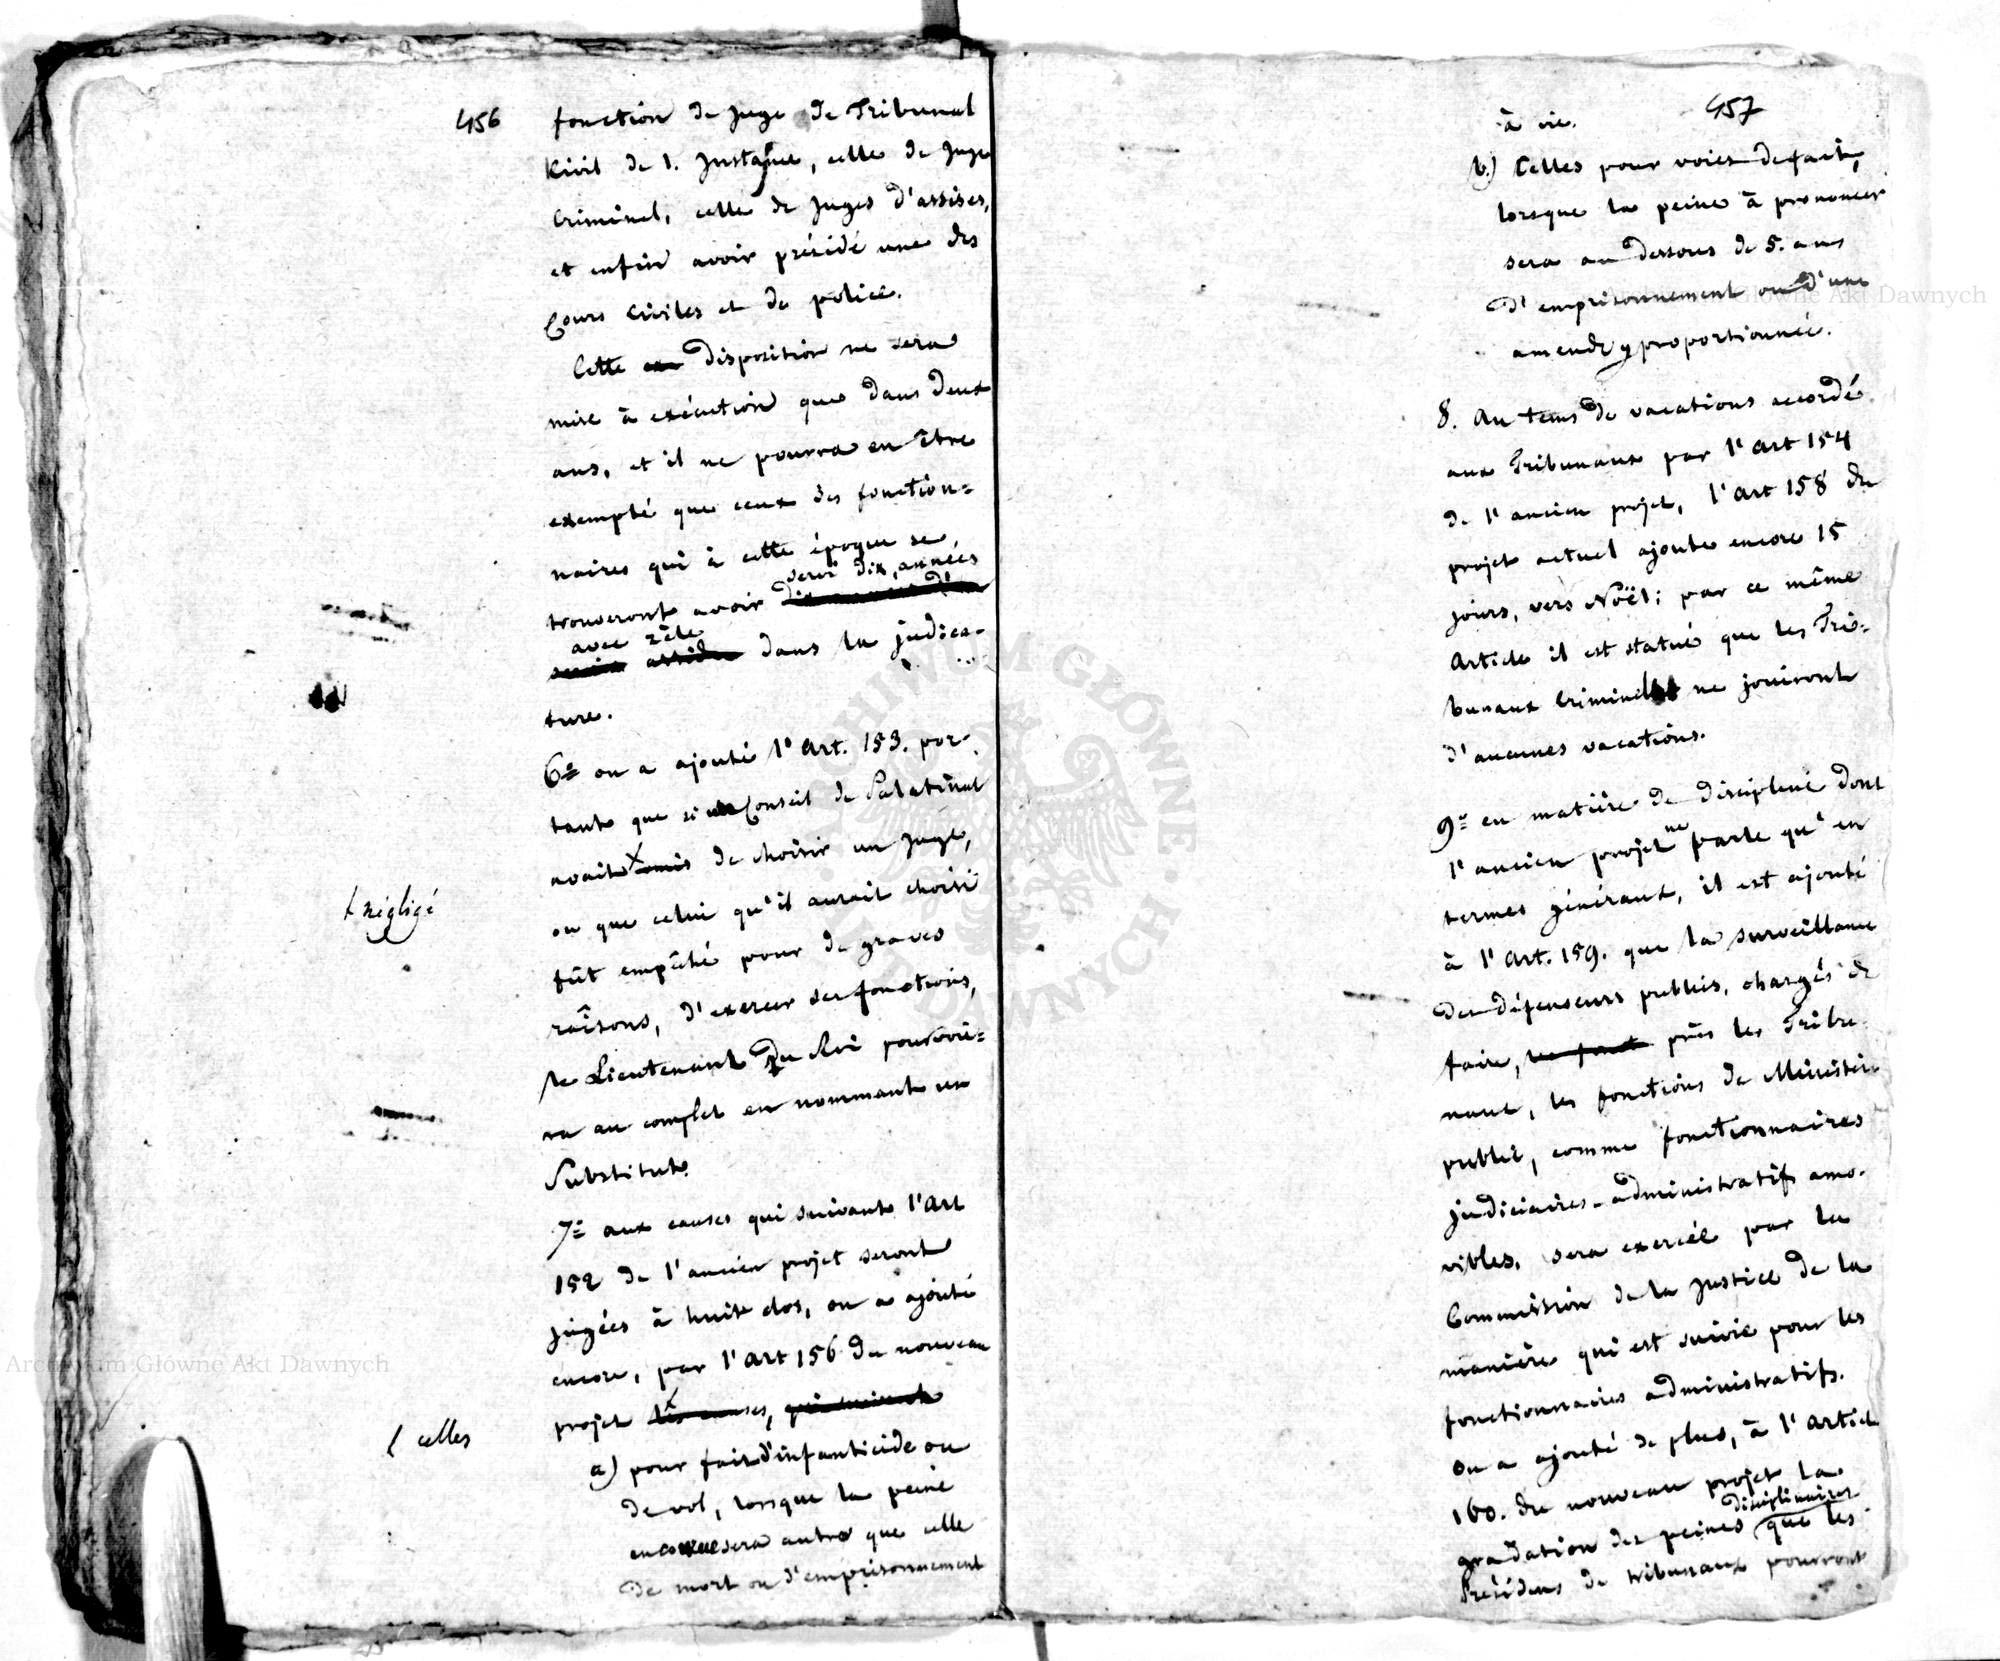 456
fonction de Juge de Tribunal
Civil de 1. Instance, celle de Juge
Criminel, celle de Juges d'assises,
et enfin avoir présidé une des
Cours Civiles et de police.
Cette disposition ne sera
mise à exécution que dans deux
ans, et il ne pourra en être
exempté que ceux des fonction=
naires qui à cette époque se
servi dix années
trouveront avoir
avec zèle
dans la judica-
ture.
6º on a ajouté l'Art. 153. por-
tant que si un Conseil de Palatinat
avait omis de choisir un Juge,
ou que celui qu'il aurait choisi
negligé
fût empêché pour de graves
raisons, d'exercer ses fonctions,
le Lieutenant du Roi pourvoi=
ra au complet en nommant un
Substitut.
7º aux causes qui suivant l'Art
152 de l'ancien projet seront
jugées à huit clos, on a ajouté
encore, par l'Art 156 du nouveau
projet les causes, qui suivent
celles
a) pour fait d'infanticide ou
de vol, lorsque la peine
encourue sera autre que celle
de mort ou d'emprisonnement
457
à vie.
b.) Celles pour voies de fait,
lorsque la peine à prononcer
sera au dessous de 5. ans
d'emprisonnement ou d'une
amende proportionnée.
8. Au tems de vacations accordé
aux Tribunaux par l'Art 154
de l'ancien projet, l'Art 158 du
projet actuel ajoute encore 15
jours, vers Noël; par ce même
Article il est statué que les Tri=
bunaux Criminels ne jouiront
d'aucunes vacations.
9º en matière de discipline dont
l'ancien projet ne parle qu'en
termes généraux, il est ajouté
à l'Art. 159. que la surveillance
des défenseurs publics, chargés de
faire, près les Tribu-
naux, les fonctions de Ministère
public, comme fonctionnaires
judiciaires-administratifs amo-
vibles, sera exercée par la
Commission de la Justice de la
manière qui est suivie pour les
fonctionnaires administratifs.
On a ajouté de plus, à l'Article
160. du nouveau projet la
disciplinaires
gradation des peines que les
Présidens de tribunaux pourront
Archiwum Główne Akt Dawnych
Archiwum Główne Akt Dawnych
ARCHIWUM GŁÓWNE AKT DAWNYCH